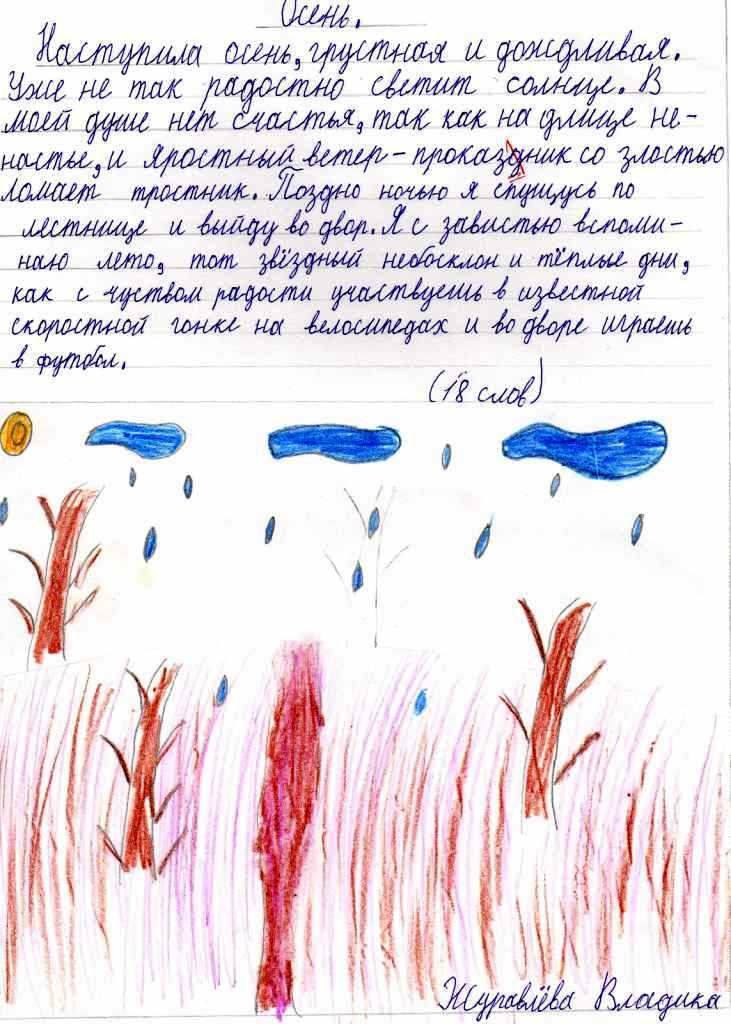 Осень.
Наступила осень, грустная и дождливая.
Уже не так радостно светит солнце. В
моей душе нет счастья, так как на улице не-
настье, и яростный ветер - проказдник со злостью
ломает тростник. Поздно ночью я спущусь по
лестнице и выйду во двор. Я с завистью вспоми-
наю лето, тот звёздный небосклон и тёплые дни,
как с чуством радости участвуешь в известной
скоростной гонке на велосипедах и во дворе играешь
в футбол.
(18 слов)
Журавлёва Владика